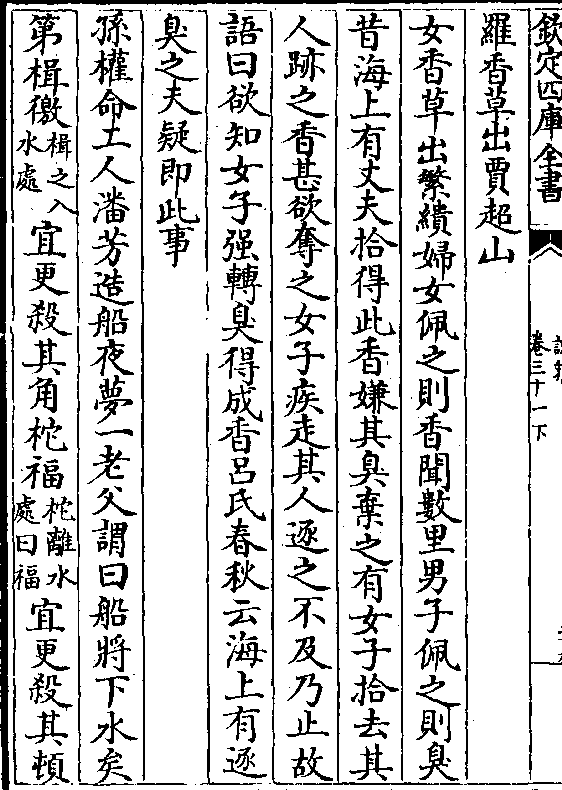 欽定四庫全書
卷三十一下
羅香草出賈超山
女香草出繁繢婦女佩之則香聞數里男子佩之則臭
昔海上有丈夫拾得此香嫌其臭棄之有女子拾去其
人跡之香甚欲奪之女子疾走其人逐之不及乃止故
語曰欲知女子强轉臭得成香呂氏春秋云海上有逐
臭之夫疑即此事
孫權命工人潘芳造船夜夢一老父謂曰船將下水矣
第楫㣲楫之入水處宜更殺其角柁福柁離水處曰福宜更殺其頓